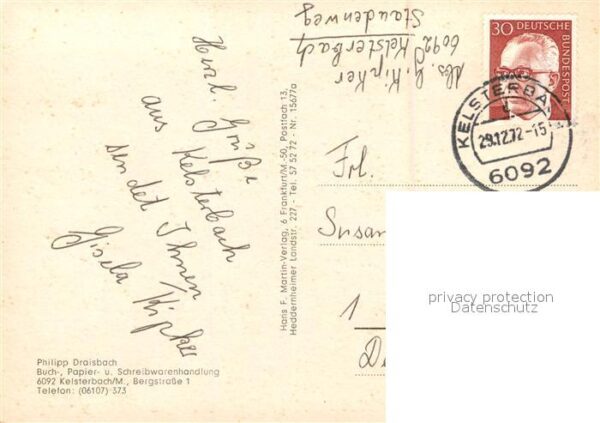 Herzl. Grüße
aus Kelsterbach
sendet Ihnen
Gisela Kipker
Philipp Draisbach
Buch-, Papier- u. Schreibwarenhandlung
6092 Kelsterbach/M., Bergstraße 1
Telefon: (06107) 373
Hans F. Martin-Verlag, 6 Frankfurt/M.-50, Postfach 13,
Heddernheimer Landstr. 227 - Tel. 57 52 72 - Nr. 15677a
Abs. G. Kipker
6092 Kelsterbach
Staudenweg
30 DEUTSCHE
BUNDESPOST
KELSTERBA
29.12.72-15
6092
Frl.
Susan
1
D
privacy protection
Datenschutz